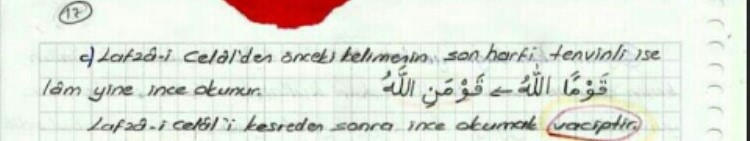 17
c) Lafzâ-i Celâl'den önceki kelimenin son harfi tenvinli ise
lâm yine ince okunur. قَوْمًا اللّٰهُ ← قَوْمَنِ اللّٰهُ
Lafzâ-i celâl'i kesreden sonra ince okumak vaciptir.